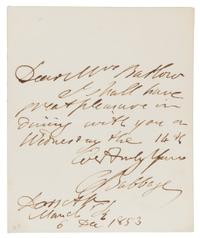 Dear Mrs Barlow
I shall have
great pleasure in
dining with you on
Wednesday the 14th
Ever truly yours
C Babbage
Dorset St
6 Dec 1853